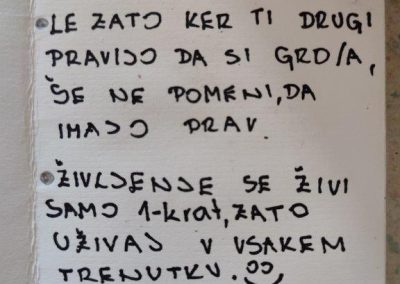 • LE ZATO KER TI DRUGI
PRAVIJO DA SI GRD/A,
ŠE NE POMENI, DA
IMAJO PRAV.
• ŽIVLJENJE SE ŽIVI
SAMO 1-krat, ZATO
UŽIVAJ V VSAKEM
TRENUTKU.